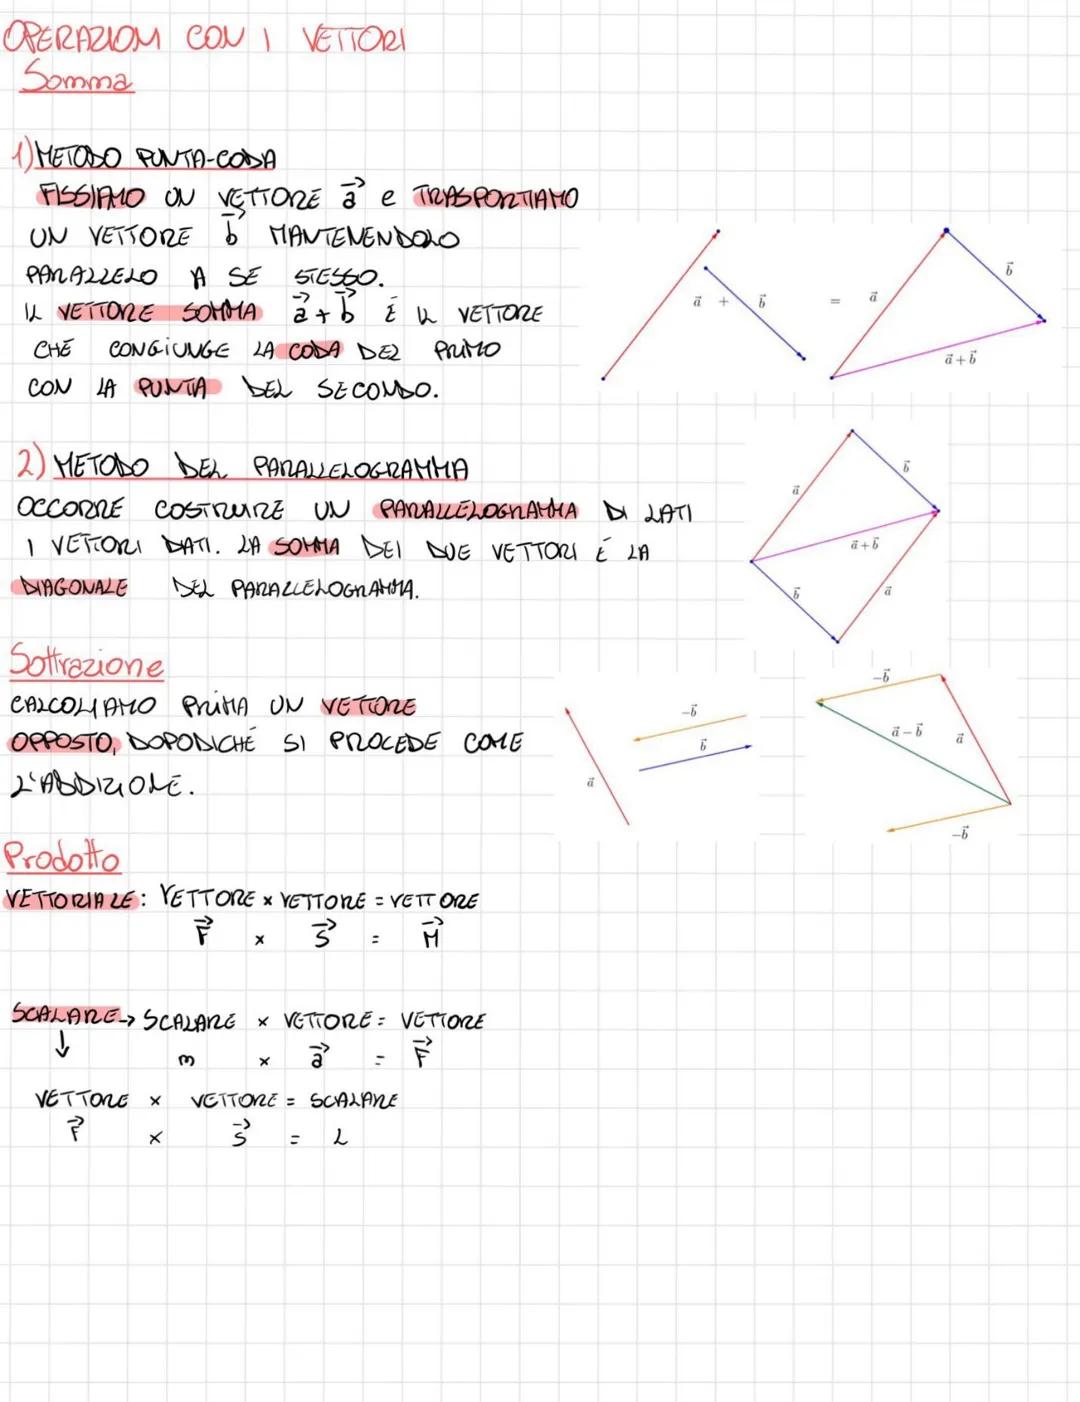 OPERAZIONI CON I VETTORI
Somma
1) METODO PUNTA-CODA
FISSIAMO UN VETTORE a⃗ e TRASPORTIAMO
UN VETTORE b⃗ MANTENENDOLO
PARALLELO A SE STESSO.
IL VETTORE SOMMA a⃗ + b⃗ É IL VETTORE
CHE CONGIUNGE LA CODA DEL PRIMO
CON LA PUNTA DEL SECONDO.
a⃗ + b⃗ = a⃗ b⃗
a⃗ + b⃗
2) METODO DEL PARALLELOGRAMMA
OCCORRE COSTRUIRE UN PARALLELOGRAMMA DI LATI
I VETTORI DATI. LA SOMMA DEI DUE VETTORI É LA
DIAGONALE DEL PARALLELOGRAMMA.
a⃗ b⃗
a⃗ + b⃗
b⃗ a⃗
Sottrazione
CALCOLIAMO PRIMA UN VETTORE
OPPOSTO, DOPODICHÉ SI PROCEDE COME
L'ADDIZIONE.
−b⃗
b⃗
a⃗
−b⃗
a⃗ − b⃗ a⃗
−b⃗
Prodotto
VETTORIALE: VETTORE × VETTORE = VETTORE
F⃗ × S⃗ = M⃗
SCALARE → SCALARE × VETTORE = VETTORE
↓ m × a⃗ = F⃗
VETTORE × VETTORE = SCALARE
F⃗ × S⃗ = L